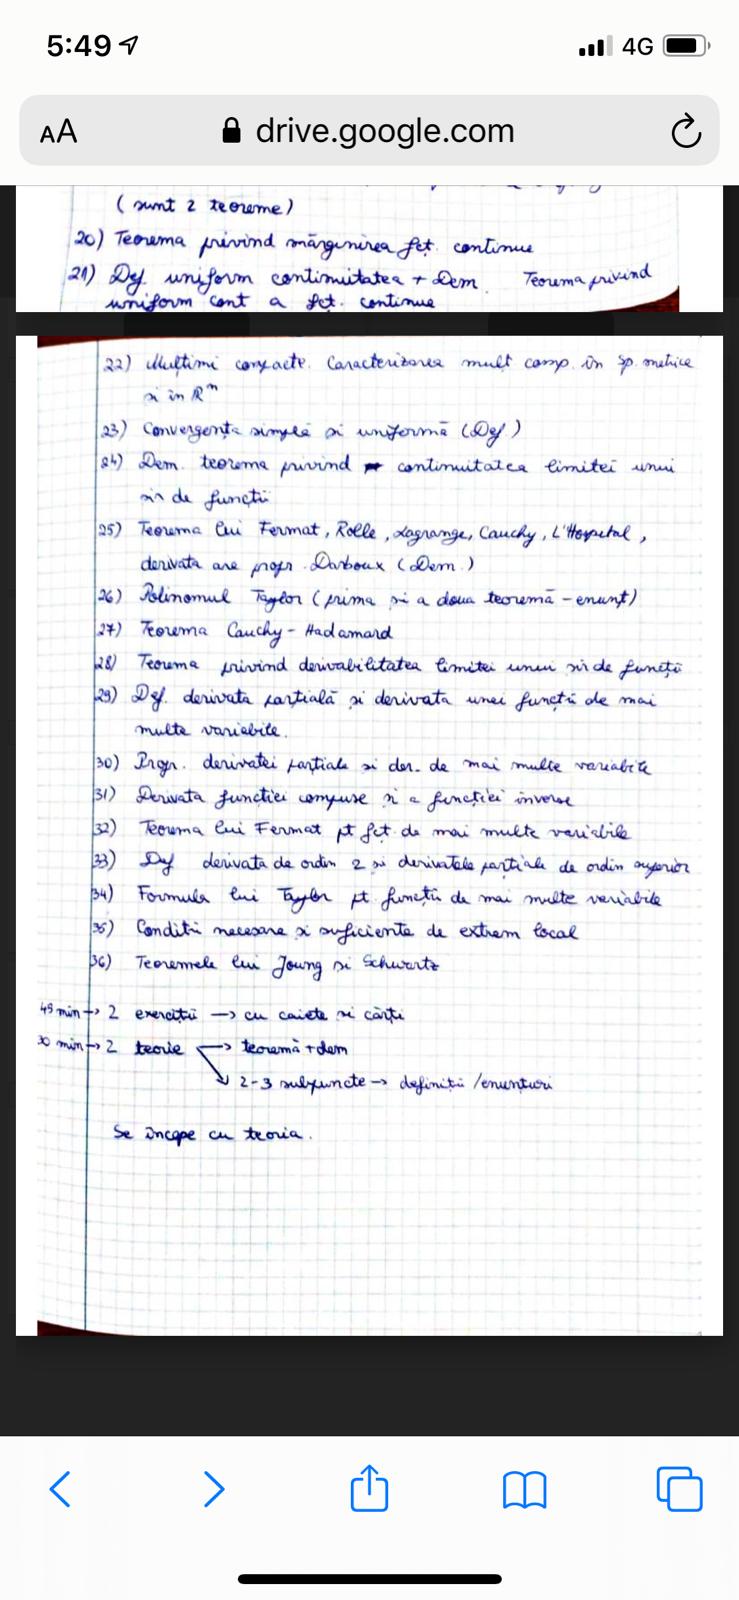 5:49
4G
AA
drive.google.com
(sunt 2 teoreme)
20) Teorema privind mărginirea fct. continue
21) Def. uniform continuitatea + Dem. Teorema privind
uniform cont a fct. continue
22) Mulțimi compacte. Caracterizarea mult comp. în sp. metrice
și în Rⁿ
23) Convergența simplă și uniformă (Def)
24) Dem. teorema privind continuitatea limitei unui
șir de funcții
25) Teorema lui Fermat, Rolle, Lagrange, Cauchy, L'Hospital,
derivata are propr. Darboux (Dem.)
26) Polinomul Taylor (prima și a doua teoremă - enunț)
27) Teorema Cauchy - Hadamard
28) Teorema privind derivabilitatea limitei unui șir de funcții
29) Def. derivata parțială și derivata unei funcții de mai
multe variabile.
30) Propr. derivatei parțiale și der. de mai multe variabile
31) Derivata funcției compuse și a funcției inverse
32) Teorema lui Fermat pt fct. de mai multe variabile
33) Def derivata de ordin 2 și derivatele parțiale de ordin superior
34) Formula lui Taylor pt. funcții de mai multe variabile
35) Condiții necesare și suficiente de extrem local
36) Teoremele lui Joung și Schwartz
45 min → 2 exerciții → cu caiete și cărți
30 min → 2 teorie → teoremă + dem
↘ 2-3 subpuncte → definiții / enunțuri
Se începe cu teoria.